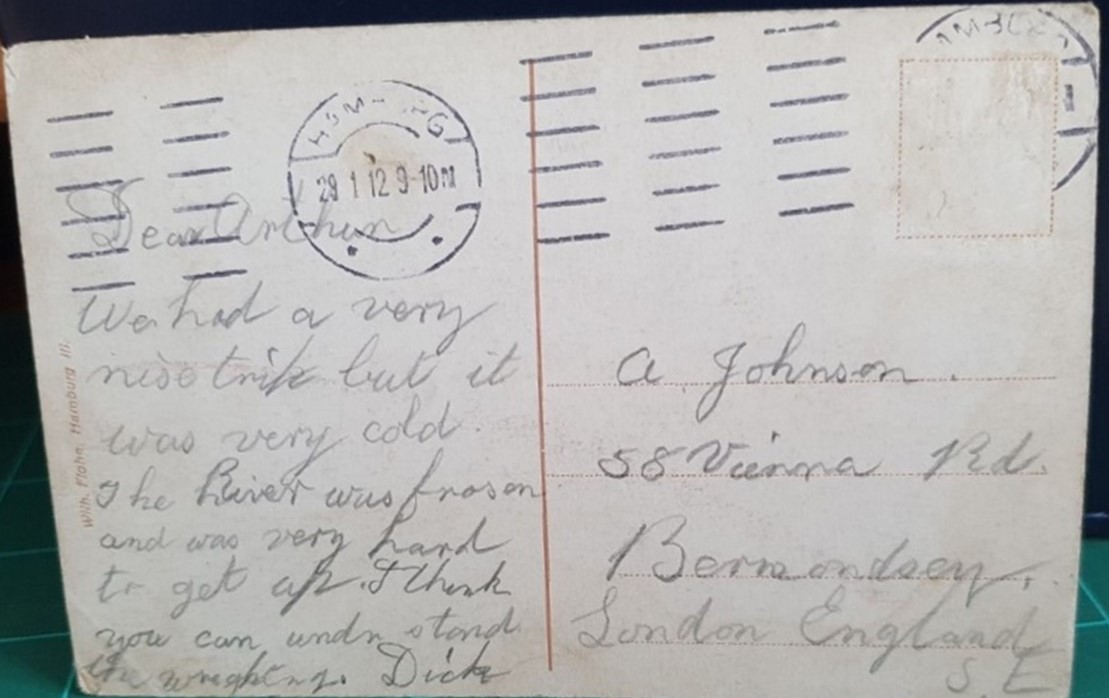 29 1 12 9-10
Dear Arthur
We had a very
nise trip but it
was very cold.
The River was frosen
and was very hard
to get up. I think
you can undr stand
the wrighting. Dick
Wilh. Flohr, Hamburg III.
A. Johnson.
58 Vienna Rd.
Bermondsey,
London England
S E